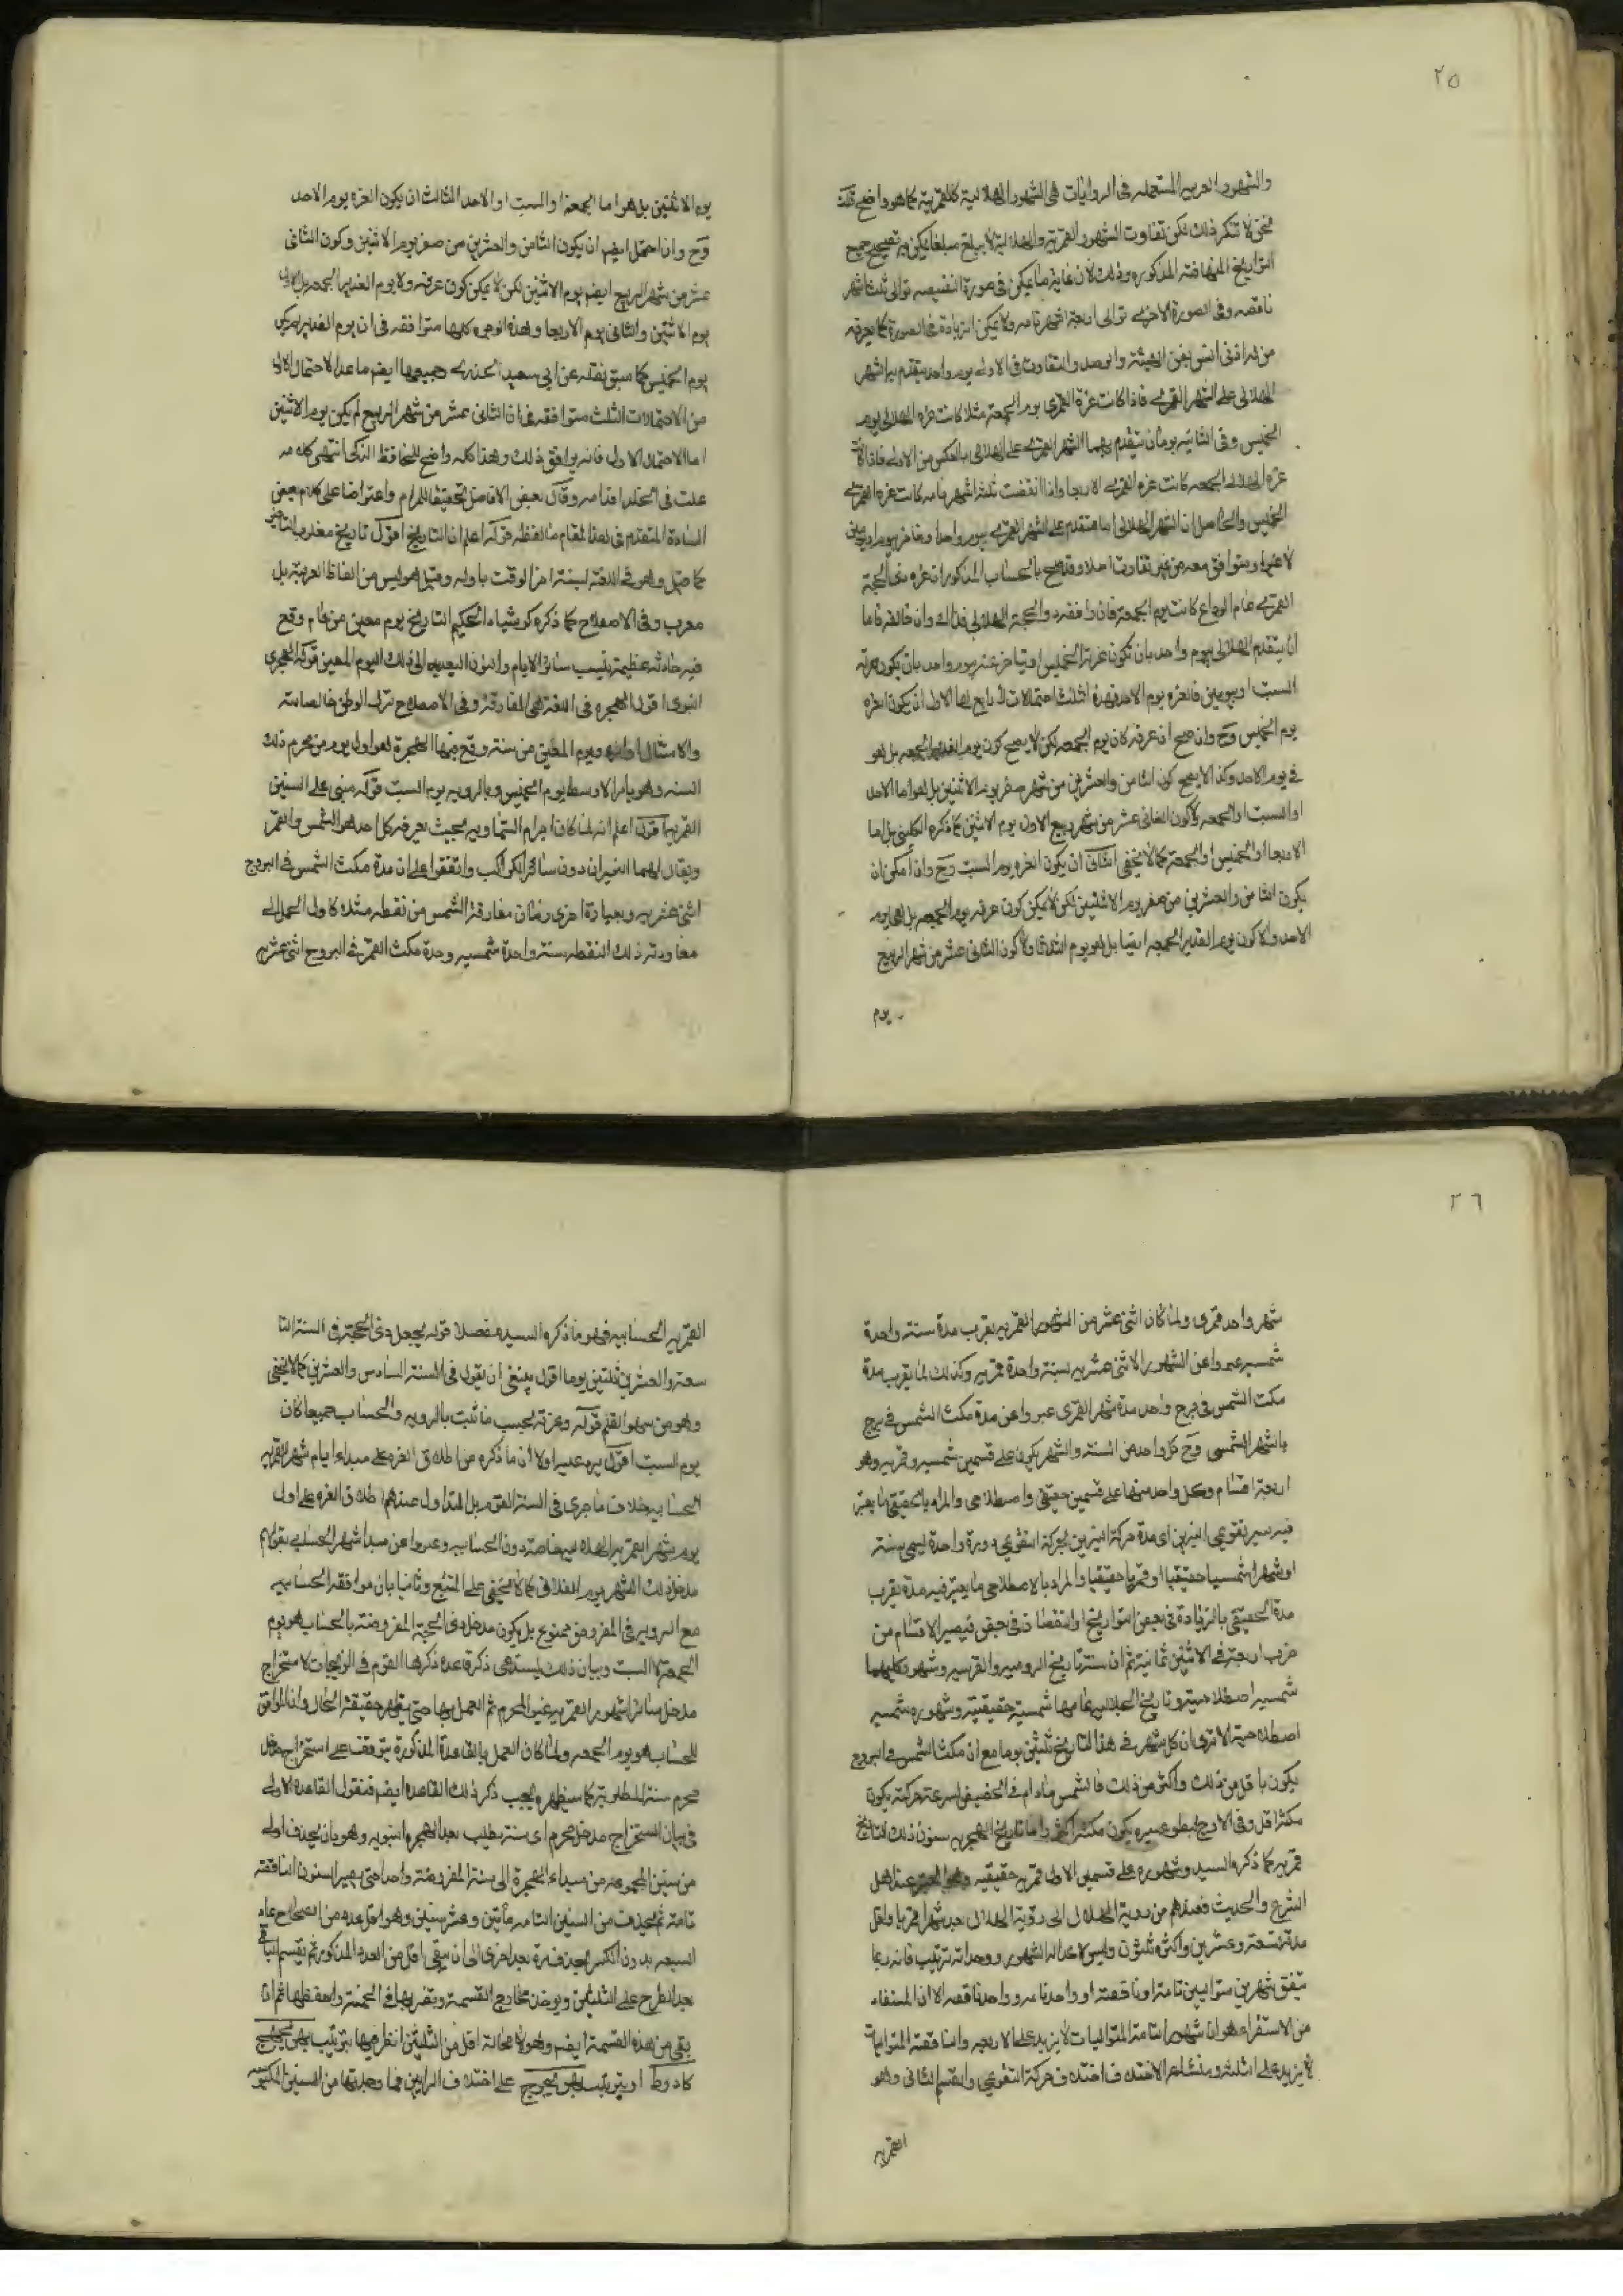 ٢٥
والشهور العربيه المستعمله فى الروايات هى الشهور الهلاليه لا القمرية كما هو واضح قلت
نحن لا ننكر ذلك لكن تفاوت الشهور القمرية والهلالية لا يبلغ مبلغا يمكن به تصحيح جميع
التواريخ المتهافته المذكوره وذلك لان غاية ما يمكن فى صورة النقيصه توالى ثلث اشهر
ناقصه وفى الصورة الاخرى توالى اربعة اشهر تامه ولا يمكن الزيادة فى الصورة كما يعرفه
من له ادنى انس بفن الهيئة والرصد والتفاوت فى الاولى يوم واحد يتقدم به الشهر
الهلالى على الشهر القمرى فاذا كانت غرة القمرى يوم الجمعة مثلا كانت غره الهلالى يوم
الخميس وفى الثانيه يومان يتقدم بهما الشهر القمرى على الهلالى بالعكس من الاولى فاذا كانت
غرة الهلالى الجمعه كانت غره القمرى الاربعا واذا انقضت ثلثة اشهر تامه كانت غره القمرى
الخميس والحاصل ان الشهر الهلالى اما متقدم على الشهر القمرى بيوم واحد او متاخر بيوم او يومين
لا غير او متوافق معه من غير تفاوت اصلا وقد صح بالحساب المذكور ان غره ذى الحجة
القمرى عام الوداع كانت يوم الجمعة فان وافقه ذو الحجة الهلالى فذاك وان خالفه فاما
ان يتقدم الهلالى بيوم واحد بان تكون غرته الخميس او يتاخر عنه بيوم واحد بان يكون غرته
السبت او بيومين فالغره يوم الاحد فهذه ثلثة احتمالات لا رابع لها الاول ان يكون الغره
يوم الخميس وح وان صح ان عرفه كان يوم الجمعه لكن لا يصح كون يوم الغدير الجمعه بل هو
فى يوم الاحد وكذا لا يصح كون الثامن والعشرين من شهر صفر يوم الاثنين بل هو اما الاحد
او السبت او الجمعه ولا كون الثانى عشر من شهر ربيع الاول يوم الاثنين كما ذكره الكلينى بل اما
الاربعا او الخميس او الجمعة كما لا يخفى الثانى ان يكون الغره يوم السبت وح وان امكن ان
يكون الثامن والعشرين من صفر يوم الاثنين لكن لا يمكن كون عرفه يوم الجمعه بل هى يوم
الاحد ولا كون يوم الغدير الجمعه ايضا بل هو يوم الثلاثا ولا كون الثانى عشر من شهر الربيع
يوم
يوم الاثنين بل هو اما الجمعة او السبت او الاحد الثالث ان يكون الغره يوم الاحد
وح وان احتمل ايضا ان يكون الثامن والعشرين من صفر يوم الاثنين وكون الثانى
عشر من شهر الربيع ايضا يوم الاثنين لكن لا يمكن كون عرفه ولا يوم الغدير الجمعه بل الاول
يوم الاثنين والثانى يوم الاربعا وهذه الوجوه كلها متوافقه فى ان يوم الغدير لم يكن
يوم الخميس كما سبق نقله عن ابى سعيد الخدرى وجميعها ايضا ما عدا الاحتمال الاول
من الاحتمالات الثلث متوافقه فى ان الثانى عشر من شهر الربيع لم يكن يوم الاثنين
اما الاحتمال الاول فانه يوافق ذلك وهذا كله واضح للحافظ الذكى انتهى كلامه
علت فى الخلد اقدامه وقال بعض الافاضل تحقيقا للمرام واعتراضا على كلام بعض
السادة المتقدم فى هذا المقام ما لفظه قوله اعلم ان التاريخ اقول تاريخ معلوم التاخير
كما قيل وهو فى اللغه لبسته اخر الوقت باوله وقيل هو ليس من الفاظ العربيه بل
معرب وفى الاصطلاح كما ذكره كوشيار الحكيم التاريخ يوم معين من عام وقع
فيه حادثه عظيمة ينسب سائر الايام والازمان البعديه الى ذلك اليوم المعين قوله الهجرى
النبوى اقول الهجره فى اللغة هى المفارقة وفى الاصطلاح ترك الوطن خالصا لله
والامتثال اوامره ويوم المعين من سنة وقع فيها الهجرة هو اول يوم من محرم ذلك
السنه وهو بالامر الاوسط يوم الخميس وبالرويه يوم السبت قوله مبنى على السنين
القمريه اقول اعلم انه لما كان اجرام السماويه بحيث يعرفه كل احد هو الشمس والقمر
ويقال لهما النيران دون سائر الكواكب واتفقوا على ان مدة مكث الشمس فى البروج
اثنى عشريه وبعبارة اخرى زمان مفارقة الشمس من نقطه مثلا كاول الحمل الى
معاودته ذلك النقطه سنة واحدة شمسيه ومدة مكث القمر فى البروج اثنى عشريه
٢٦
شهر واحد قمرى ولما كان اثنى عشر من الشهور القمريه يقرب مدة سنة واحدة
شمسيه عبروا عن الشهور الاثنى عشريه بسنة واحدة قمريه وكذلك لما يقرب مدة
مكث الشمس فى برج واحد مدة شهر القمرى عبروا عن مدة مكث الشمس فى برج
بالشهر الشمسى وح كل واحد من السنة والشهر يكون على قسمين شمسيه وقمريه وهو
اربعة اقسام وكل واحد منها على قسمين حقيقى واصطلاحى والمراد بالحقيقى ما يعتبر
فيه سير تقويمى النيرين اى مدة حركة النيرين بحركة التقويمى دورة واحدة يسمى سنة
او شهرا شمسيا حقيقيا او قمريا حقيقيا والمراد بالاصطلاحى ما يعتبر فيه مدة يقرب
مدة الحقيقى بالزيادة فى بعض التواريخ او النقصان فى بعض فيصير الاقسام من
ضرب اربعة فى الاثنين ثمانية ثم ان سنة تاريخ الروميه والفرسيه وشهور كليهما
شمسيه اصطلاحيه وتاريخ الجلاليه عامها شمسية حقيقية وشهوره شمسيه
اصطلاحية الا ترى ان كل شهر فى هذا التاريخ ثلثين يوما مع ان مكث الشمس فى البروج
يكون باقل من ذلك واكثر من ذلك فالشمس مادام فى الحضيض لسرعة حركته يكون
مكثه اقل وفى الاوج لبطوء سيره يكون مكثه اكثر واما تاريخ الهجريه سنون ذلك التاريخ
قمريه كما ذكره السيد وشهوره على قسمين الاول قمريه حقيقيه وهو المعتبر عند اهل
الشرع والحديث فعندهم من روية الهلال الى روية الهلال يعد شهرا قمريا واقل
مدته تسعة وعشرين واكثره ثلثون وليس لاعداد الشهور ووحداته ترتيب فانه ربما
يتفق شهرين متواليين تامة او ناقصه او واحد تامه وواحد ناقصه الا ان المستفاد
من الاستقراء هو ان شهور التامة المتواليات لا يزيد على الاربعه والناقصة المتواليات
لا يزيد على الثلثه ومنشاء الاختلاف اختلاف حركة التقويمى والقسم الثانى وهو
القمريه
القمريه الحسابيه فهو ما ذكره السيد مفصلا قوله يجعل ذى الحجة فى السنة التا
سعة والعشرين ثلثين يوما اقول ينبغى ان يقول فى السنة السادس والعشرين كما لا يخفى
وهو من سهو القلم قوله وغرته بحسب ما ثبت بالرويه والحساب جميعا كان
يوم السبت اقول يرد عليه اولا ان ما ذكره من اطلاق الغره على مبداء ايام شهر القمريه
الحسابيه خلاف ما جرى فى السنة القوم بل المتداول عندهم اطلاق الغره على اول
يوم شهر القمريه الهلاليه خاصه دون الحسابيه وعبروا عن مبدا شهر الحسابى بقولهم
مدخل ذلك الشهر يوم الفلانى كما لا يخفى على المتتبع وثانيا بان موافقه الحسابيه
مع الرويه فى المفروض ممنوع بل يكون مدخل ذى الحجة المفروضة بالحساب هو يوم
الجمعة لا السبت وبيان ذلك يستدعى ذكر قاعده ذكرها القوم فى الزيجات لاستخراج
مدخل سائر الشهور القمريه غير المحرم ثم العمل بها حتى يظهر حقيقة الحال وان الموافق
للحساب هو يوم الجمعه ولما كان العمل بالقاعدة المذكورة يتوقف على استخراج مدخل
محرم سنة المطلوبة كما سيظهر يجب ذكر ذلك القاعده ايضا فنقول القاعده الاولى
فى بيان استخراج مدخل محرم اى سنة يطلب بعد الهجره النبويه وهو بان يحذف اولا
من سنين المجموعه من مبداء الهجرة الى سنة المفروضة واحدا حتى يصير السنون الناقصه
تامة ثم يحذف من السنين التامه مأتين وعشر سنين وهو اقل عدد من الصحاح عاد
السبعه بدون الكسر يحذفه مرة بعد اخرى الى ان يبقى اقل من العدد المذكور ثم يقسم الباقى
بعد الطرح على الثلثين ويوخذ مخارج القسمة ويضربها فى الخمسة واحفظها ثم ان
بقى من هذه القسمة ايضا وهو لا محالة اقل من الثلثين انظر فيها بترتيب
كادوط او بترتيب على اختلاف الرايين فما وجدتها من السنين المكبوسه